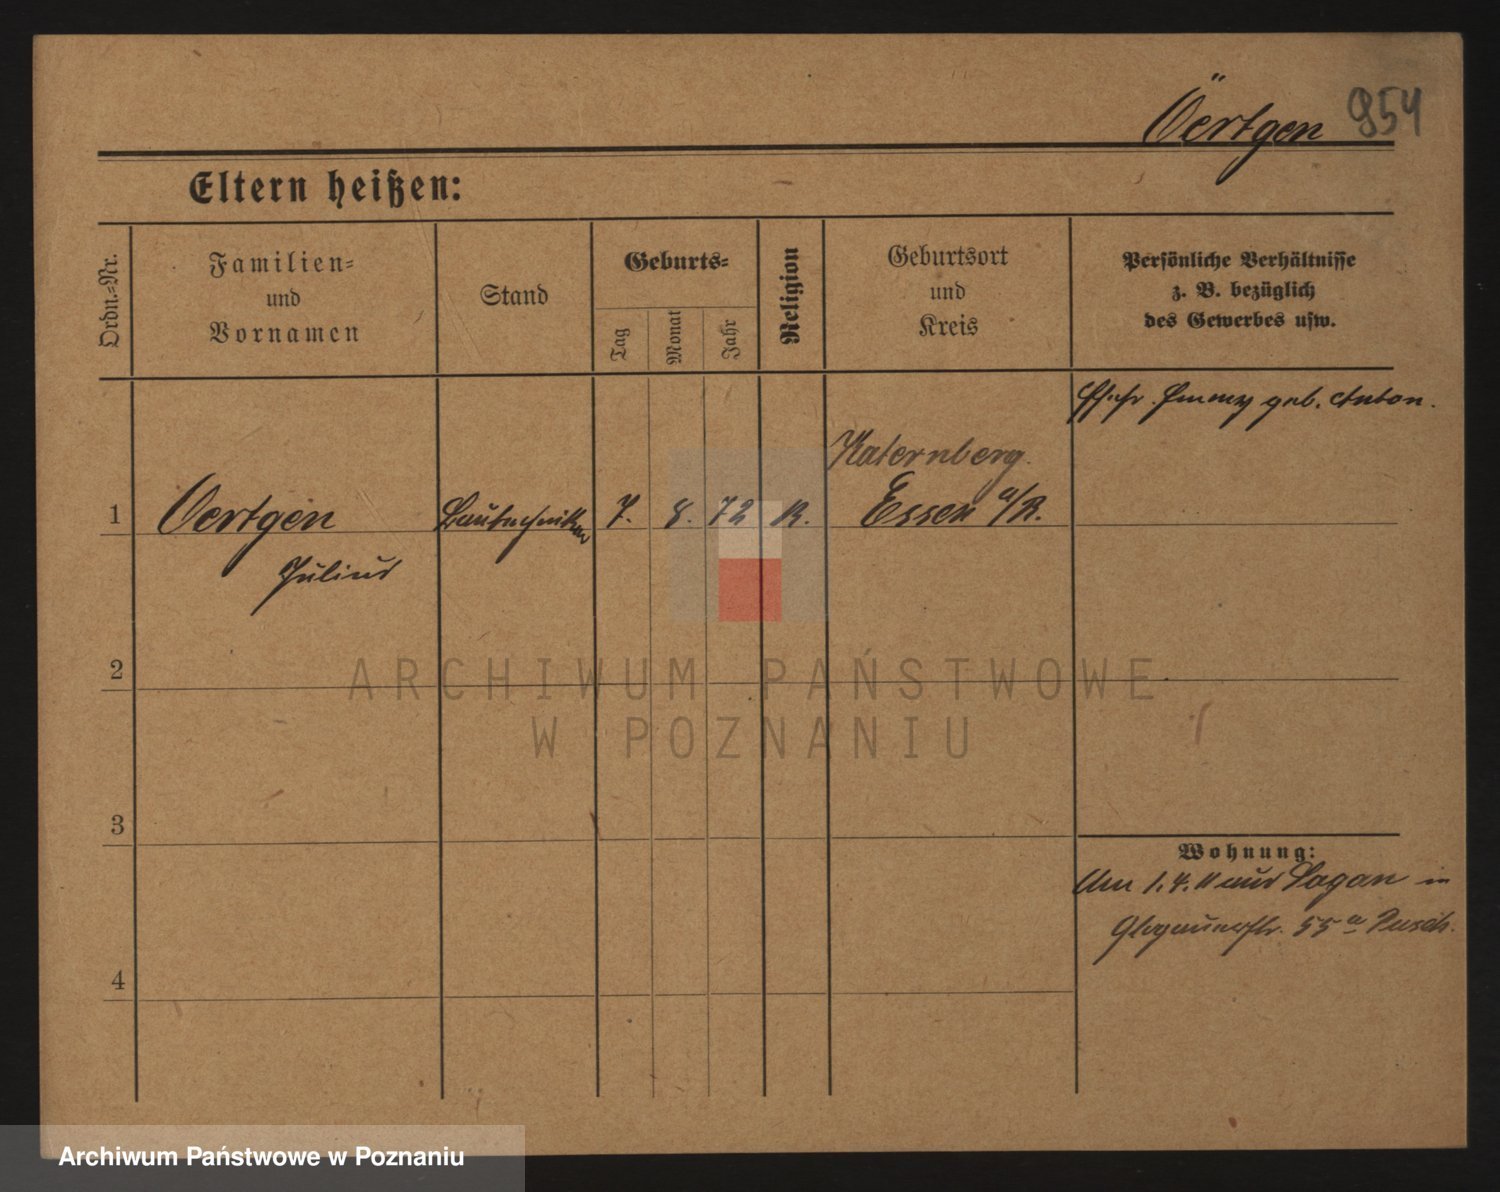 Öertgen 954
Eltern heißen:
Ordn.-Nr.
Familien-
und
Vornamen
Stand
Geburts-
Tag
Monat
Jahr
Religion
Geburtsort
und
Kreis
Persönliche Verhältnisse
z. B. bezüglich
des Gewerbes usw.
Ehefr. Emmy geb. Anton.
Katernberg.
1 Oertgen Bautechniker 7. 8. 72 K. Essen a/R.
Julius
2
ARCHIWUM PAŃSTWOWE
W POZNANIU
3
Wohnung:
Am 1.4.11 aus Sagan in
Glogauerstr. 55a
4
Archiwum Państwowe w Poznaniu